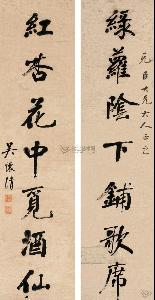 綠蘿陰下鋪歌席
紅杏花中覓酒仙
大人正之
吳懷清